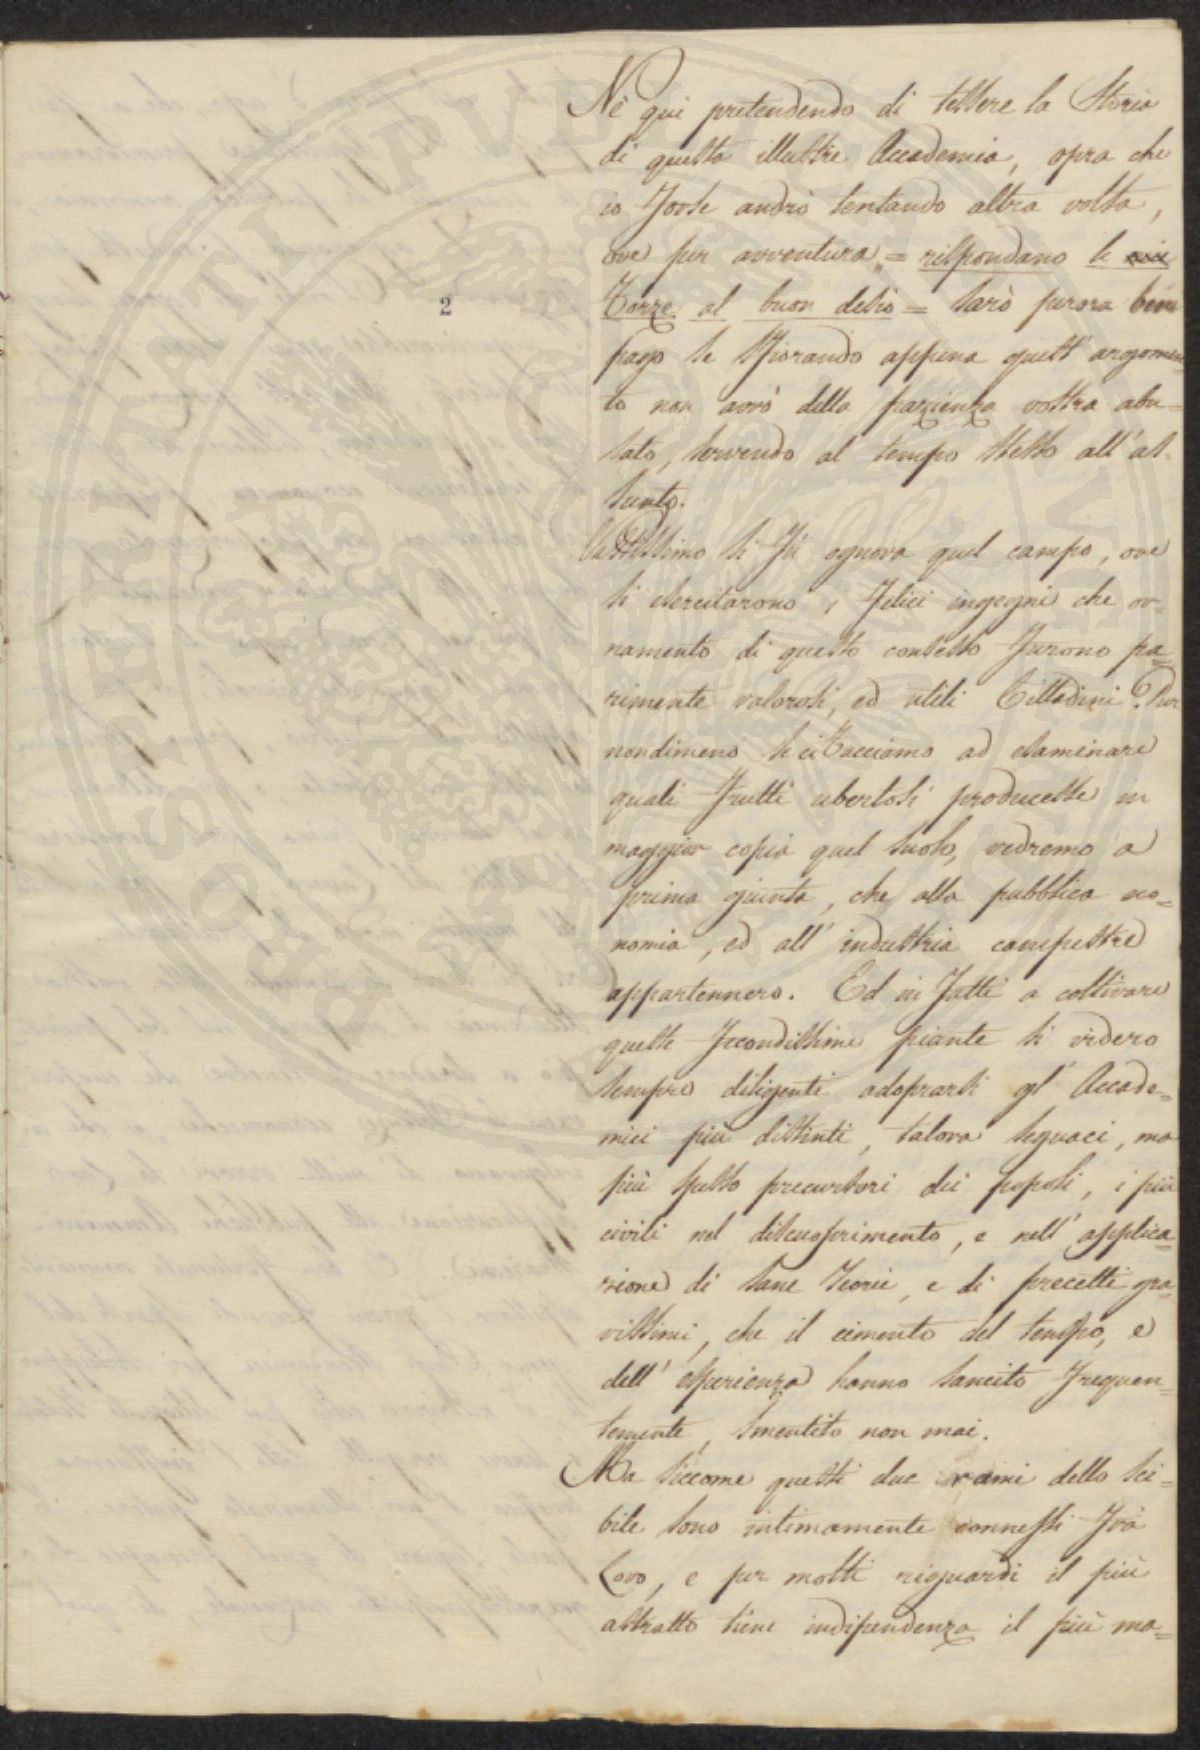 Nè qui pretendendo di tessere la Storia
di questa illustre Accademia, opra che
io forse andrò tentando altra volta,
ove per avventura = rispondano le
Forze al buon desio = sarò perora ben
pago se sfiorando appena quest' argomen
to non avrò della pazienza vostra abu=
sato, servendo al tempo stesso all' as=
sunto.
Vastissimo si fù ognora quel campo, ove
si esercitarono i felici ingegni che or=
namento di questo consesso furono pa=
rimente valorosi, ed utili Cittadini. Pur
nondimeno se ci facciamo ad esaminare
quali frutti ubertosi producesse in
maggior copia quel suolo, vedremo a
prima giunta, che alla pubblica eco=
nomia, ed all' industria campestre
appartennero. Ed in fatti a coltivare
queste fecondissime piante si videro
sempre diligenti adoprarsi gl' Accade=
mici più distinti, talora seguaci, ma
più spesso precursori dei popoli, i più
civili nel discuoprimento, e nell' applica=
zione di sane teorie, e di precetti gra=
vissimi, che il cimento del tempo, e
dell' esperienza hanno sancito frequen=
temente, smentito non mai.
Ma siccome questi due rami dello sci=
bile sono intimamente connessi frà
Loro, e per molti riguardi il più
astratto tiene indipendenza il più ma=
2
PROSPERITATI PVBLICAE